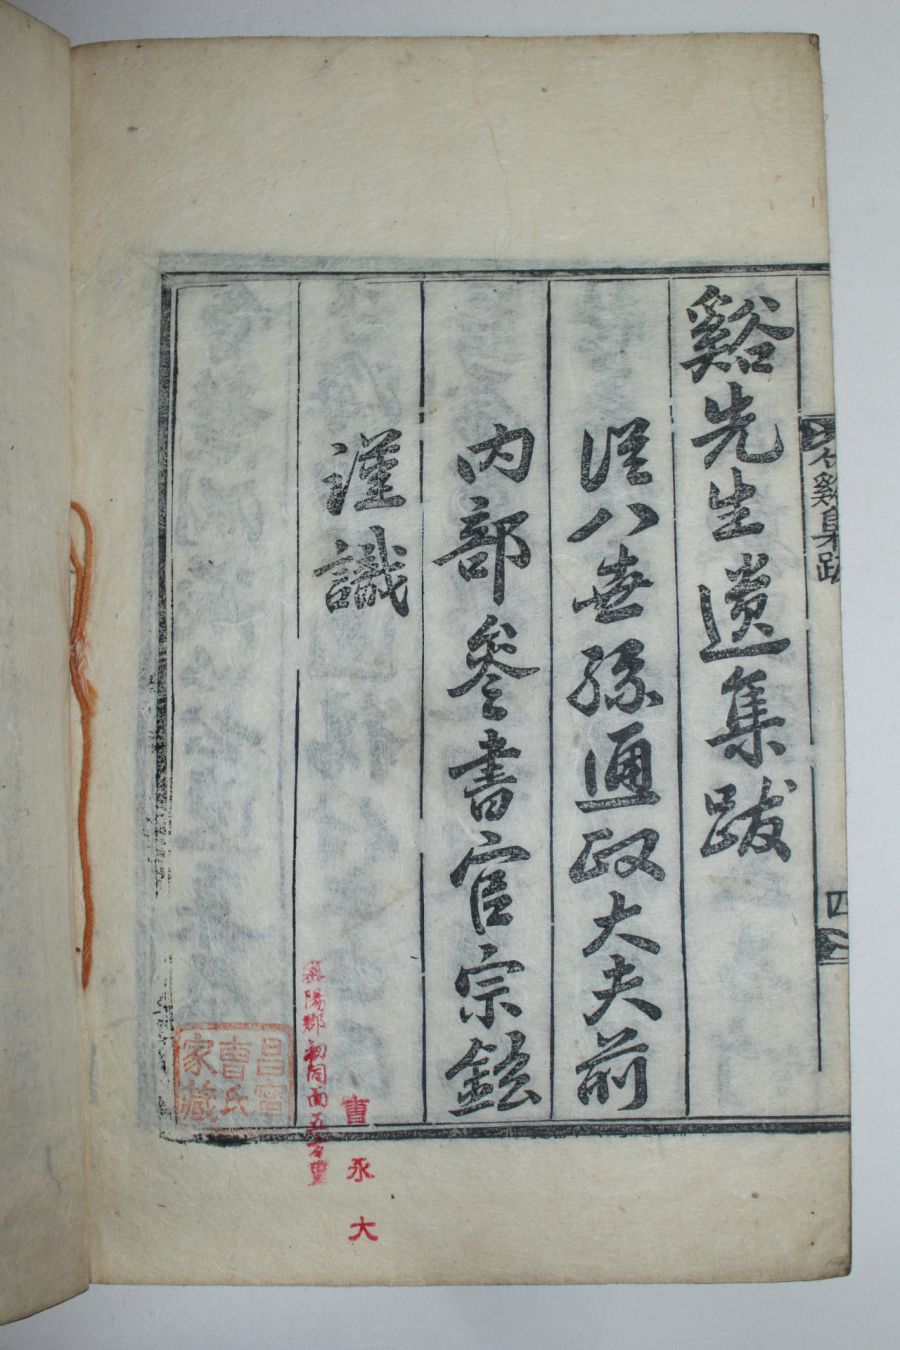 谿先生遺集跋
從八世孫通政大夫前
內部參書官宗鉉
謹識
谿集跋
四
昌寧曺氏家藏
陽郡初同面五方里
曺永大